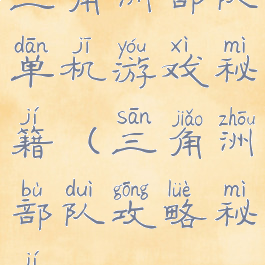 三角洲部队
dān jī yóu xì mì
单机游戏秘
jí sān jiǎo zhōu
籍（三角洲
bù duì gōng lüè mì
部队攻略秘
jí